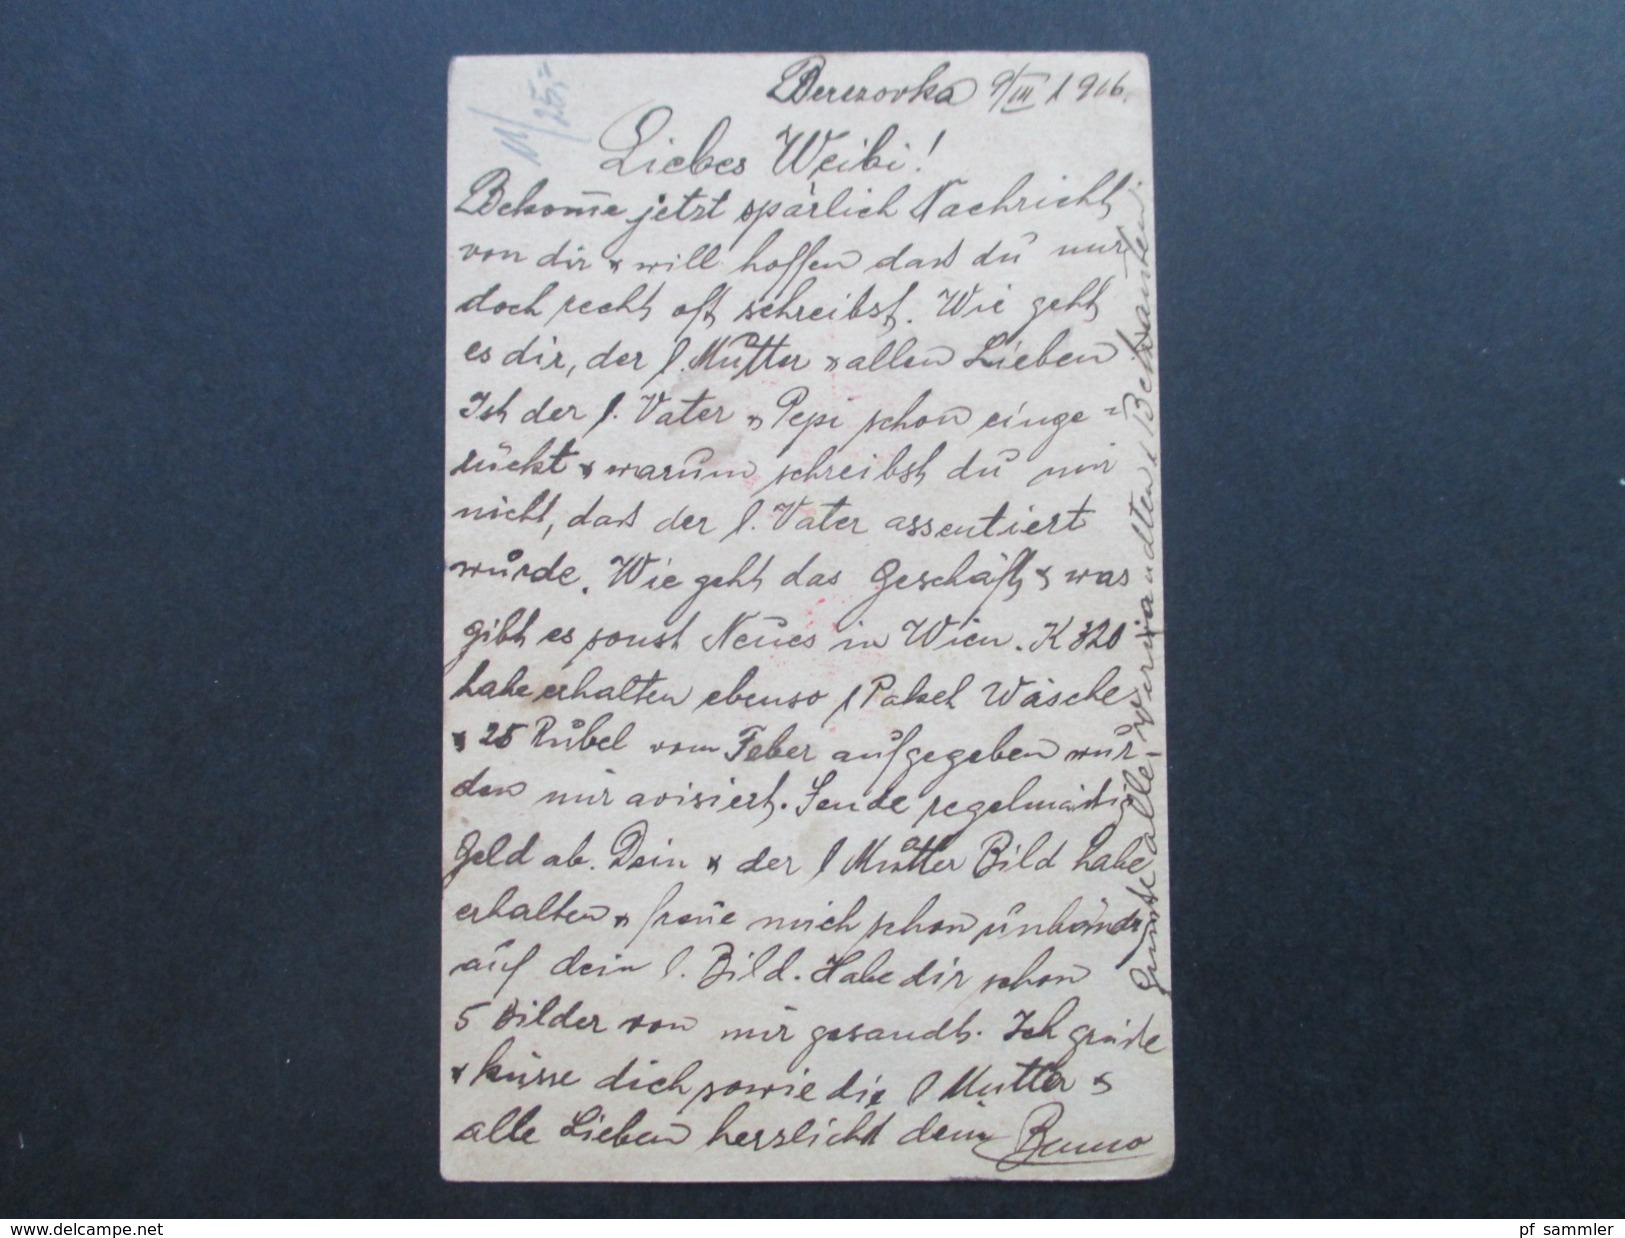 Berezovka 9/III 1916.
Liebes Weibi!
Bekom̅e jetzt spärlich Nachricht
von dir & will hoffen dass du mir
doch recht oft schreibst. Wie geht
es dir, der l. Mutter & allen Lieben
Ist der l. Vater & Pepi schon einge=
rückt & warum schreibst du mir
nicht, dass der l. Vater assentiert
wurde. Wie geht das Geschäft & was
gibt es sonst Neues in Wien. K 320
habe erhalten ebenso 1 Paket Wäsche
& 25 Rubel vom Feber aufgegeben wur-
den mir avisiert. Sende regelmässig
Geld ab. Dein & der l Mutter Bild habe
erhalten & freue mich schon unbändig
auf dein l. Bild. Habe dir schon
5 Bilder von mir gesandt. Ich grüsse
& küsse dich sowie die l Mutter &
alle Lieben herzlichst dein Benno
Grüsse alle Verwandten & Bekannten.
11/25.-
www.delcampe.net
pf_sammler